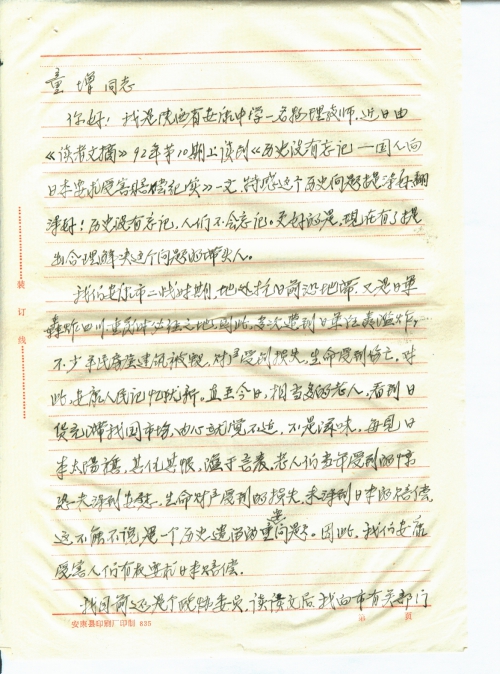 童增同志
你好！我是陕西省安康中学一名物理教师，近日由
《读者文摘》92年第10期上读到《历史没有忘记—国人向
日本要求受害赔偿纪实》一文，特感这个历史问题提得好，翻
得好！历史没有忘记，人们不会忘记。更好的是，现在有了提
出合理解决这个问题的带头人。
我们安康市二战时期，地处抗日前沿地带，又是日军
轰炸四川重庆的必经之地，因此，多次遭到日军狂轰滥炸，
不少平民房屋建筑被毁，财产受到损失，生命受到伤亡，对
此，安康人民记忆犹新。直至今日，相当多的老人，看到日
货充满我国市场，内心总觉不适，不是滋味，每见日
本太阳旗，其仇其恨，溢于言表，老人们当年受到的惊
恐未得到安慰，生命财产受到的损失，未得到日本的赔偿，
这不能不说是一个历史遗留的重大问题。因此，我们安康
受害人们有权要求日本赔偿。
我目前还是个政协委员，读该文后，我向市有关部门
装订线
安康县印刷厂印制 835
第 页